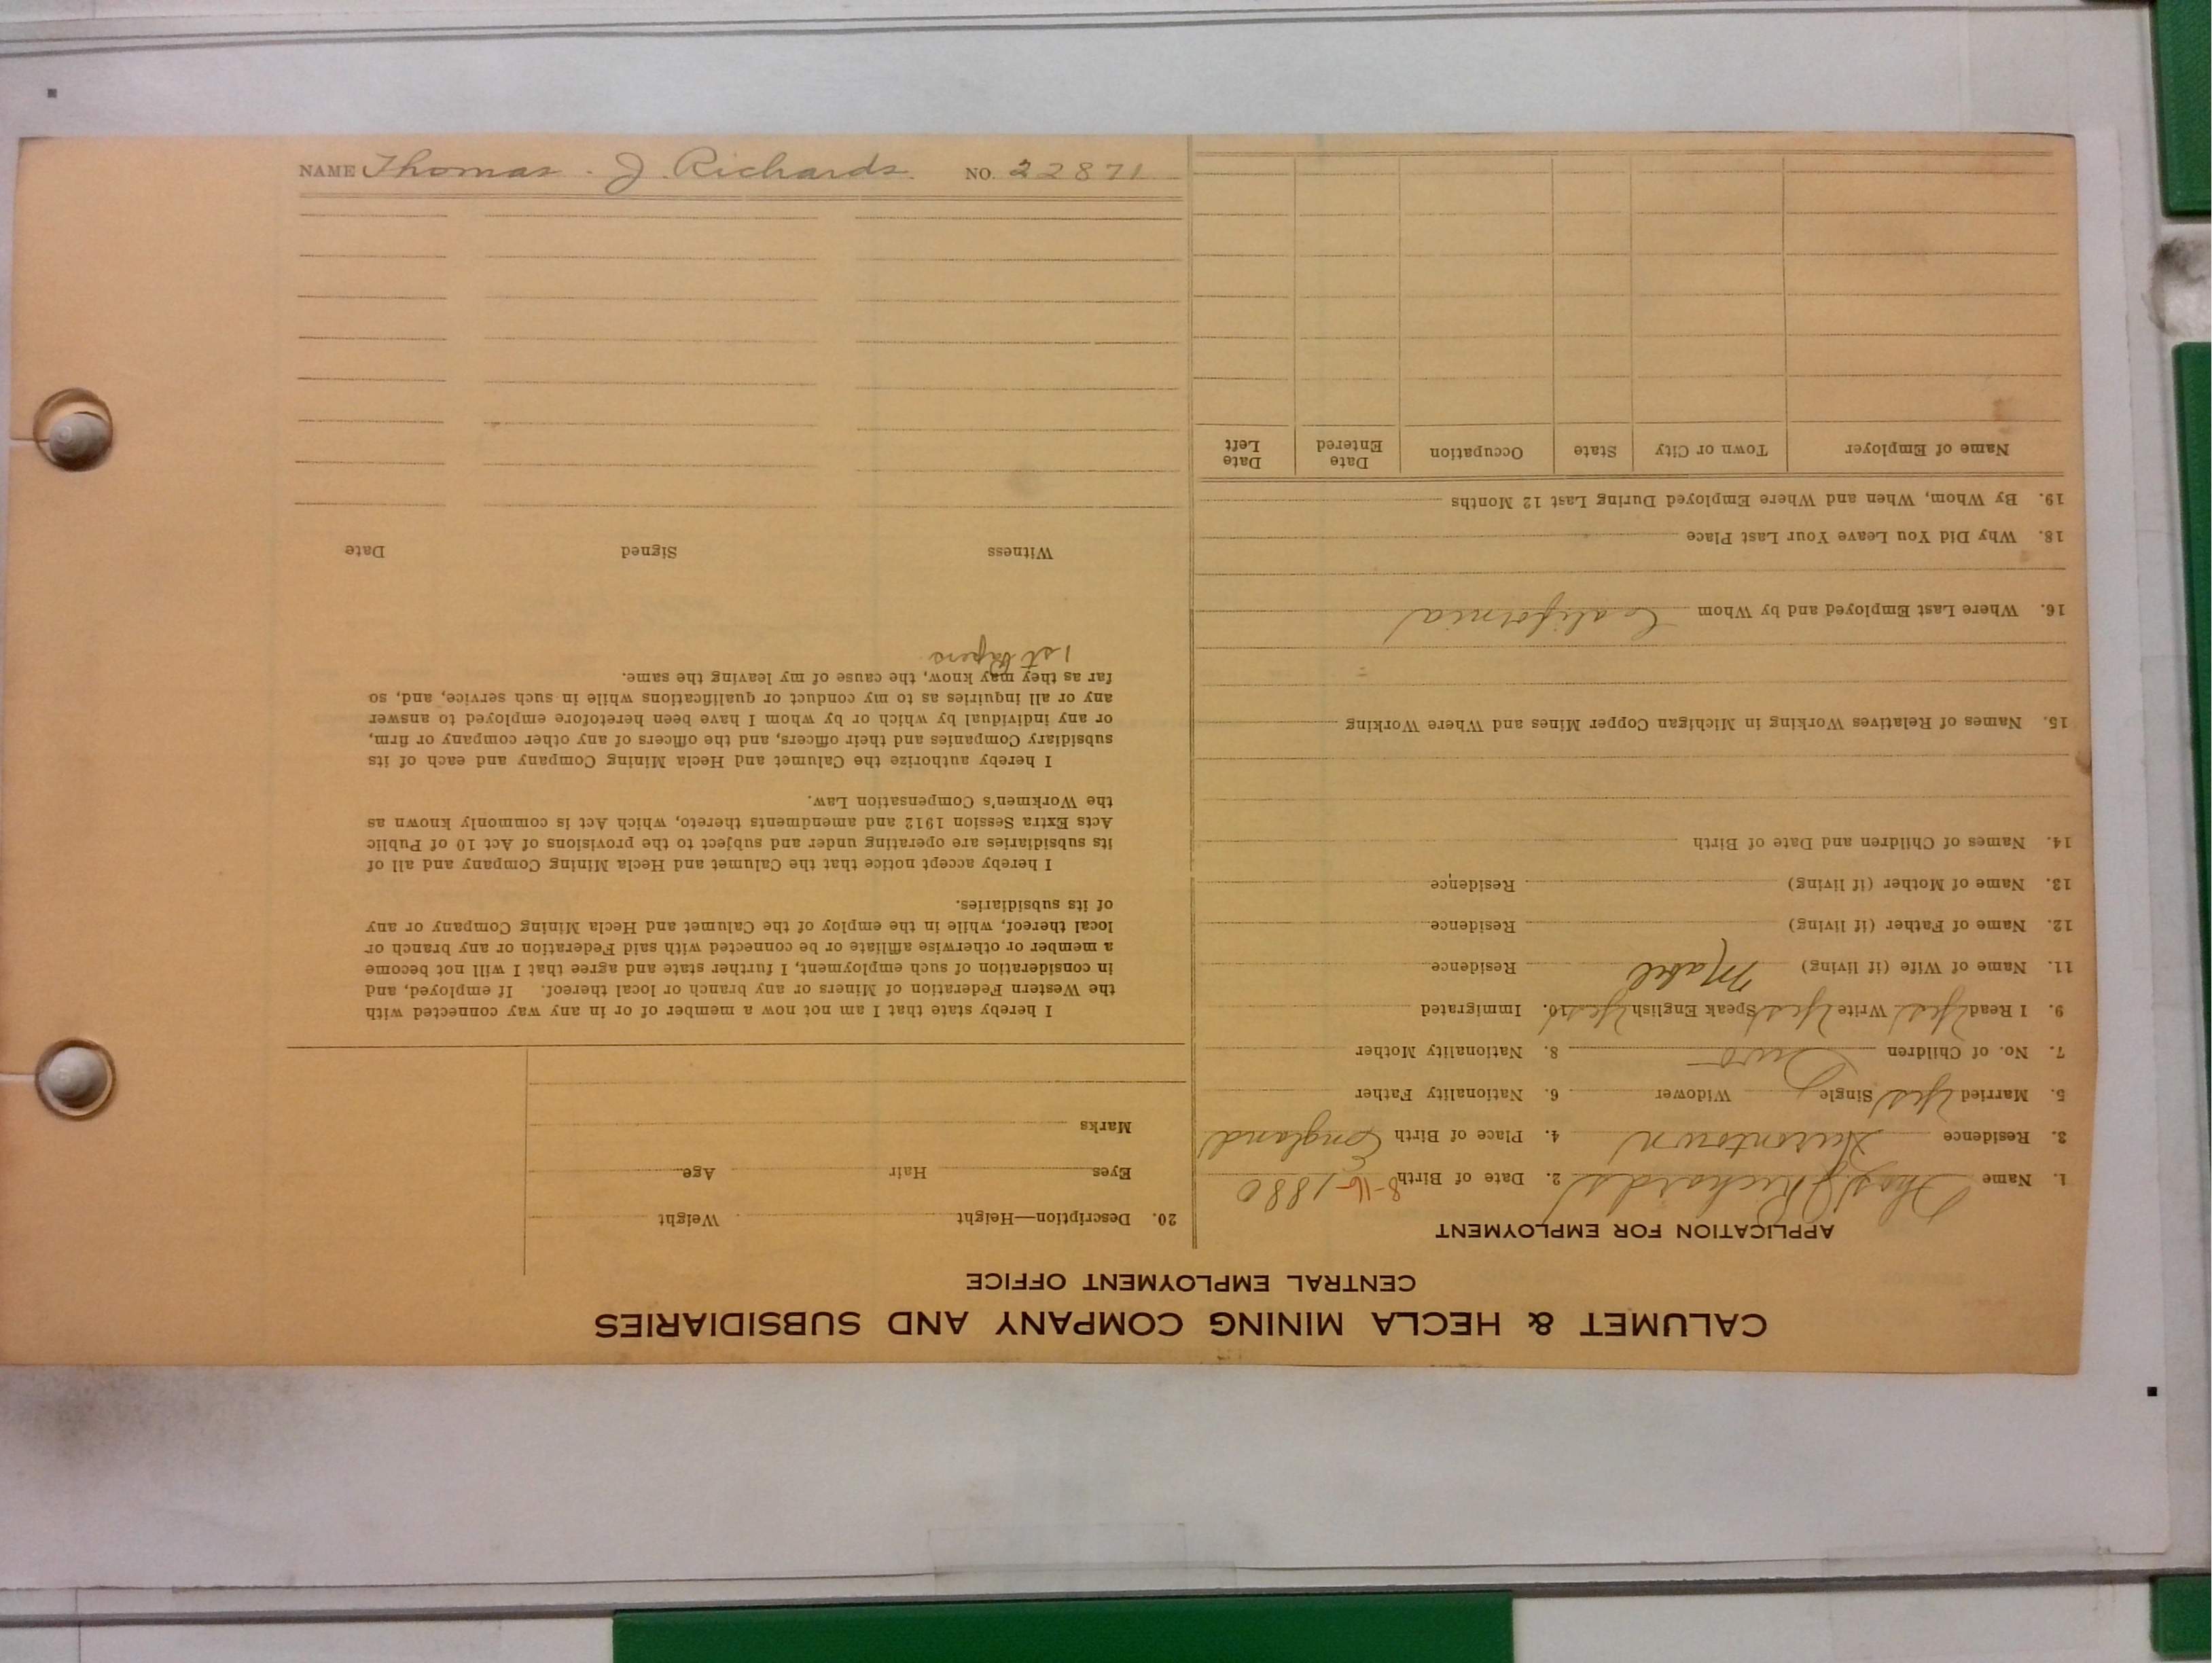 CALUMET & HECLA MINING COMPANY AND SUBSIDIARIES
CENTRAL EMPLOYMENT OFFICE
APPLICATION FOR EMPLOYMENT
1. Name Thos J Richards 2. Date of Birth 8-16-1880
3. Residence Hurontown 4. Place of Birth England
5. Married Yes Single Widower 6. Nationality Father
7. No. of Children Two 8. Nationality Mother
9. I Read Yes Write Yes Speak English Yes 10. Immigrated
11. Name of Wife (if living) Mabel Residence
12. Name of Father (if living) Residence
13. Name of Mother (if living) Residence
14. Names of Children and Date of Birth
15. Names of Relatives Working in Michigan Copper Mines and Where Working
16. Where Last Employed and by Whom California
18. Why Did You Leave Your Last Place
19. By Whom, When and Where Employed During Last 12 Months
Name of Employer Town or City State Occupation Date Entered Date Left
20. Description—Height Weight
Eyes Hair Age
Marks
I hereby state that I am not now a member of or in any way connected with
the Western Federation of Miners or any branch or local thereof. If employed, and
in consideration of such employment, I further state and agree that I will not become
a member or otherwise affiliate or be connected with said Federation or any branch or
local thereof, while in the employ of the Calumet and Hecla Mining Company or any
of its subsidiaries.
I hereby accept notice that the Calumet and Hecla Mining Company and all of
its subsidiaries are operating under and subject to the provisions of Act 10 of Public
Acts Extra Session 1912 and amendments thereto, which Act is commonly known as
the Workmen's Compensation Law.
I hereby authorize the Calumet and Hecla Mining Company and each of its
subsidiary Companies and their officers, and the officers of any other company or firm,
or any individual by which or by whom I have been heretofore employed to answer
any or all inquiries as to my conduct or qualifications while in such service, and, so
far as they may know, the cause of my leaving the same.
1st Papers
Witness Signed Date
NAME Thomas J. Richards. NO. 22871